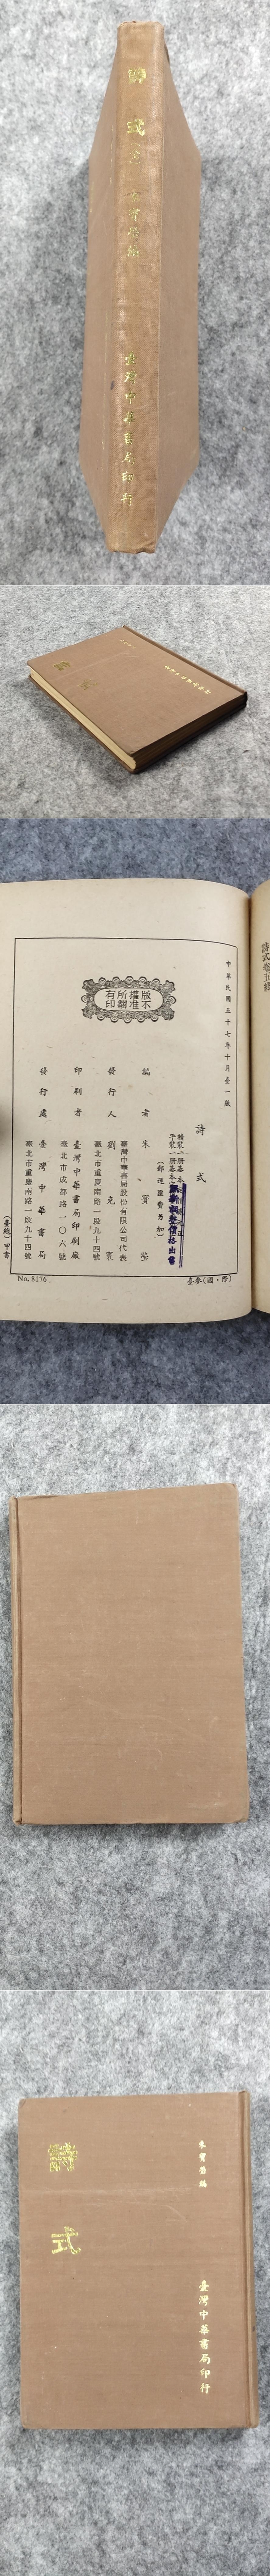 詩式
朱寶瑩編
臺灣中華書局印行
詩式卷五終
中華民國五十七年十月臺一版
詩式
精裝一册基本
平裝一册基本
(郵運匯費另加)
編者 朱寶瑩
臺灣中華書局股份有限公司代表
發行人 劉克寰
臺北市重慶南路一段九十四號
印刷者 臺灣中華書局印刷廠
臺北市成都路一〇六號
發行處 臺灣中華書局
臺北市重慶南路一段九十四號
版權所有
不准翻印
(臺總)甲書
No. 8176
臺參(國·際)
詩式
朱寶瑩編
臺灣中華書局印行